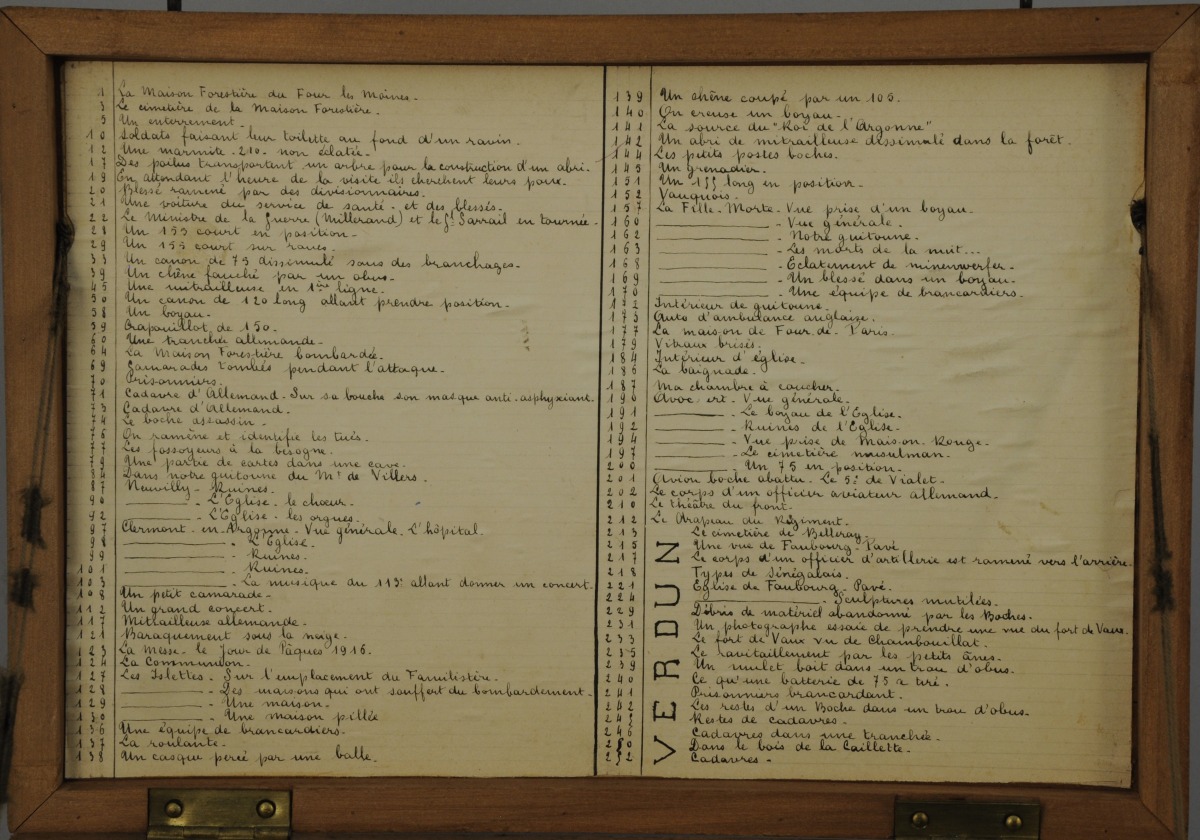 1 La Maison Forestière du Four les Moines.
3 Le cimetière de la Maison Forestière.
5 Un enterrement.
10 Soldats faisant leur toilette au fond d'un ravin.
12 Une marmite - 210 - non éclatée -
17 Des poilus transportent un arbre pour la construction d'un abri.
19 En attendant l'heure de la visite ils cherchent leurs poux.
20 Blessé ramené par des divisionnaires.
21 Une voiture du service de santé - et des blessés.
22 Le Ministre de la Guerre (Millerand) et le Gl Sarrail en tournée -
28 Un 155 court en position -
29 Un 155 court sur roues.
33 Un canon de 75 dissimulé sous des branchages -
39 Un chêne fauché par un obus -
45 Une mitrailleuse en 1ère ligne -
50 Un canon de 120 long allant prendre position -
58 Un boyau -
59 Crapouillot de 150 -
60 Une tranchée allemande -
64 La Maison Forestière bombardée -
69 Camarades tombés pendant l'attaque -
70 Prisonniers.
71 Cadavre d'Allemand - Sur sa bouche son masque anti-asphyxiant
73 Cadavre d'Allemand.
74 Le boche assassin -
76 On ramène et identifie les tués -
77 Les fossoyeurs à la besogne.
79 Une partie de cartes dans une cave.
84 Dans notre guitoune du Mt de Villers.
87 Neuvilly - Ruines.
90 ———— - L'Eglise - le chœur -
92 ———— - L'Eglise - les orgues
97 Clermont-en-Argonne - Vue générale. L'hôpital.
98 ———— - L'Eglise -
99 ———— - Ruines.
101 ———— - Ruines.
103 ———— - La musique du 113e allant donner un concert.
108 Un petit camarade -
112 Un grand concert.
117 Mitrailleuse allemande -
121 Baraquement sous la neige -
123 La Messe - le Jour de Pâques 1916.
124 La Communion -
127 Les Islettes - Sur l'emplacement du Familistère -
128 ———— - Des maisons qui ont souffert du bombardement -
129 ———— - Une maison -
130 ———— - Une maison pillée
136 Une équipe de brancardiers.
137 La roulante -
138 Un casque percé par une balle.
139 Un chêne coupé par un 105.
140 On creuse un boyau -
141 La source du "Roi de l'Argonne"
142 Un abri de mitrailleuse dissimulé dans la forêt.
144 Les petits postes boches.
145 Un grenadier.
151 Un 155 long en position -
152 Vauquois.
157 La Fille-Morte - Vue prise d'un boyau -
160 ———— - Vue générale.
162 ———— - Notre guitoune.
163 ———— - Les morts de la nuit...
168 ———— - Eclatement de minenwerfer -
169 ———— - Un blessé dans un boyau -
170 ———— - Une équipe de brancardiers.
172 Intérieur de guitoune
173 Auto d'ambulance anglaise.
177 La maison de Four-de-Paris.
179 Vitraux brisés.
184 Intérieur d'église -
186 La baignade -
187 Ma chambre à coucher -
190 Avocourt - Vue générale.
191 ———— - Le boyau de l'Eglise.
192 ———— - Ruines de l'Eglise -
194 ———— - Vue prise de Maison-Rouge -
197 ———— - Le cimetière musulman.
200 ———— - Un 75 en position -
201 Avion boche abattu - Le 5e de Vialet -
202 Le corps d'un officier aviateur allemand -
210 Le théâtre du front.
212 Le Drapeau du Régiment.
VERDUN
213 Le cimetière de Belleray.
215 Une vue de Faubourg-Pavé
217 Le corps d'un officier d'artillerie est ramené vers l'arrière
218 Types de Sénégalais.
221 Eglise de Faubourg-Pavé.
224 ———— - Sculptures mutilées.
229 Débris de matériel abandonné par les Boches.
231 Un photographe essaie de prendre une vue du fort de Vaux.
233 Le fort de Vaux vu de Chambouillat.
235 Le ravitaillement par les petits ânes -
239 Un mulet boit dans un trou d'obus.
240 Ce qu'une batterie de 75 a tiré.
241 Prisonniers brancardant.
242 Les restes d'un Boche dans un trou d'obus -
Restes de cadavres -
246 Cadavres dans une tranchée -
250 Dans le bois de la Caillette -
252 Cadavres -